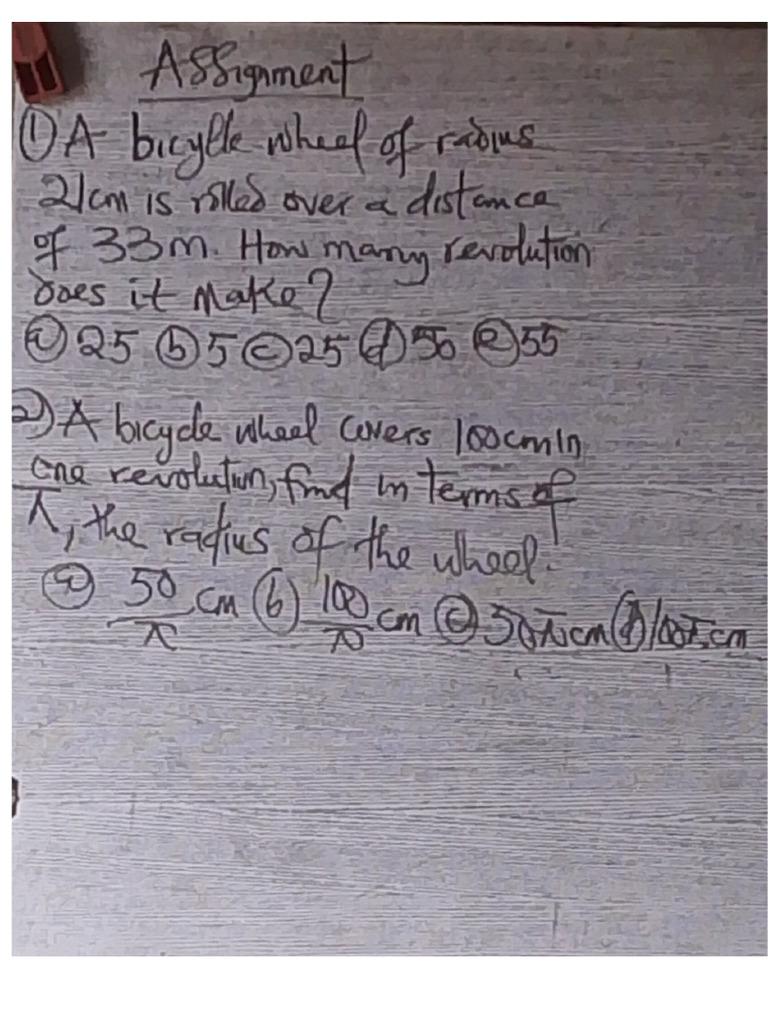 Assignment
① A bicylle wheel of radius
21cm is rolled over a distance
of 33m. How many revolution
does it make?
ⓐ 25 ⓑ 5 ⓒ 25 ⓓ 50 ⓔ 55
2) A bicycle wheel covers 100cm in
one revolution, find in terms of
π, the radius of the wheel.
ⓐ 50/π cm ⓑ 100/π cm ⓒ 50π cm ⓓ 100π cm